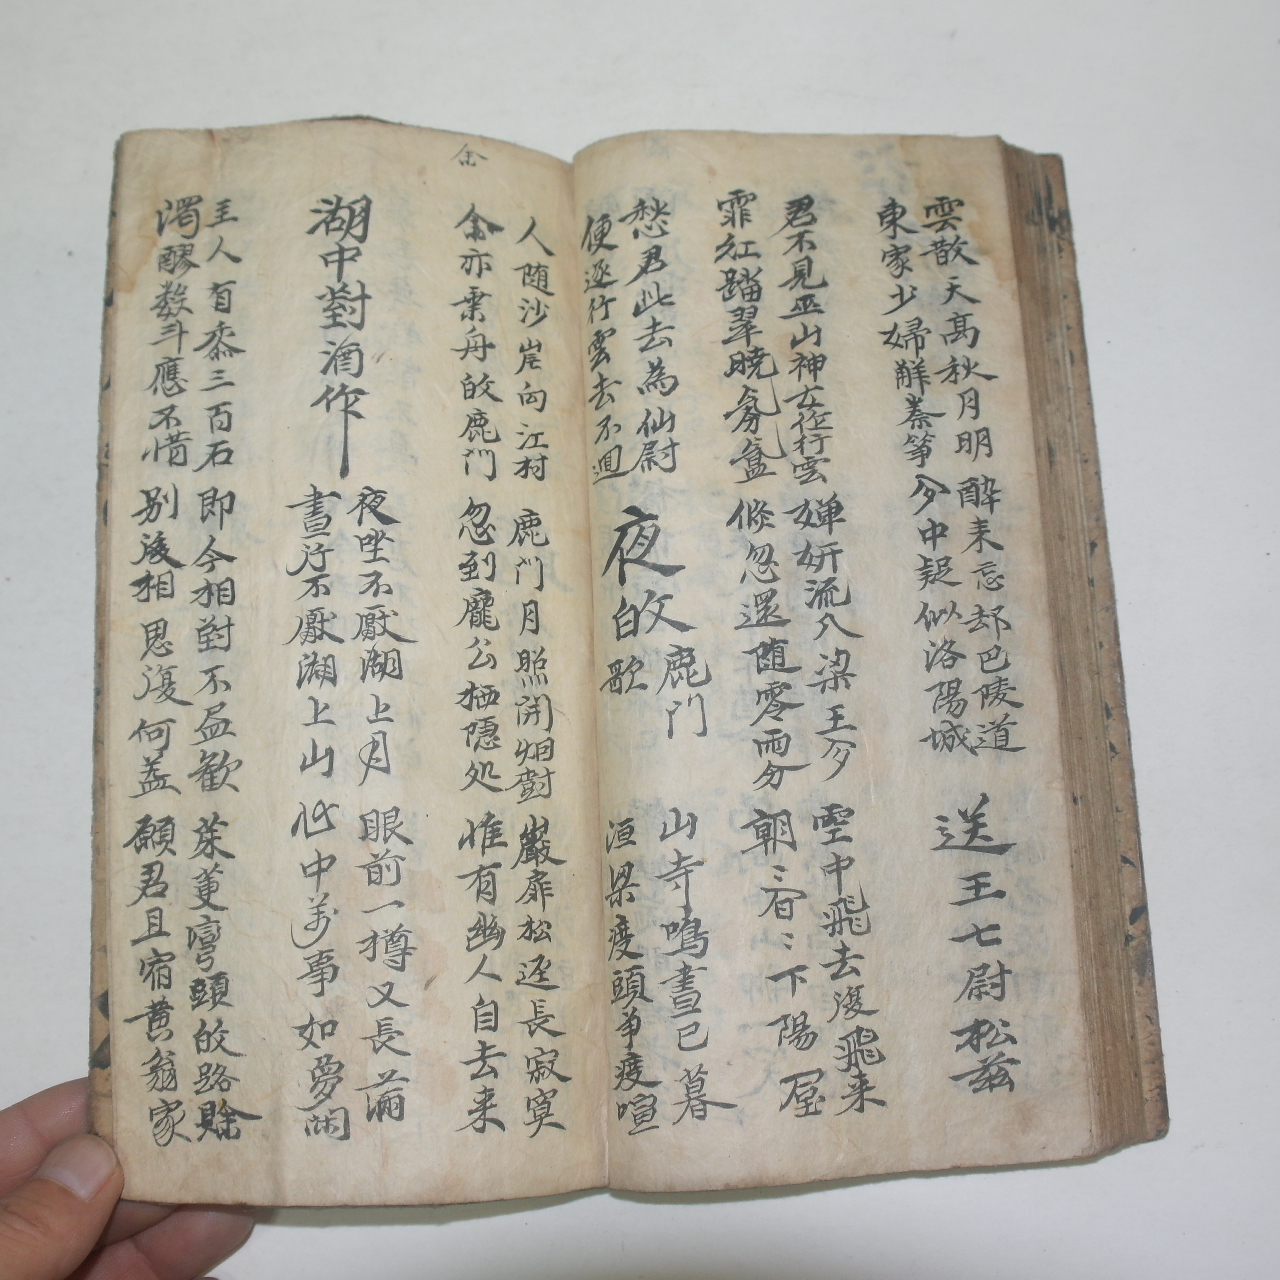 雲散天高秋月明
東家少婦解秦箏
醉来忘却巴陵道
夢中疑似洛陽城
送王七尉松兹
君不見巫山神女作行雲
霏紅踏翠曉氛氳
嬋妍流入梁王夢
倏忽還随零雨分
空中飛去復飛来
朝〻昏〻下陽臺
愁君此去為仙尉
便逐行雲去不迴
夜敀鹿門歌
山寺鳴晝已暮
洹梁渡頭爭渡喧
余
人随沙岸向江村
余亦乗舟敀鹿門
鹿門月照開烟對
忽到龐公栖隱処
巖扉松逕長寂寞
惟有幽人自去来
湖中對酒作
夜坐不厭湖上月
晝行不厭湖上山
眼前一樽又長滿
心中万事如夢閑
主人有黍三百石
濁醪数斗應不惜
即今相對不盡歡
別後相思復何益
茱萸灣頭敀路賒
願君且宿黄翁家